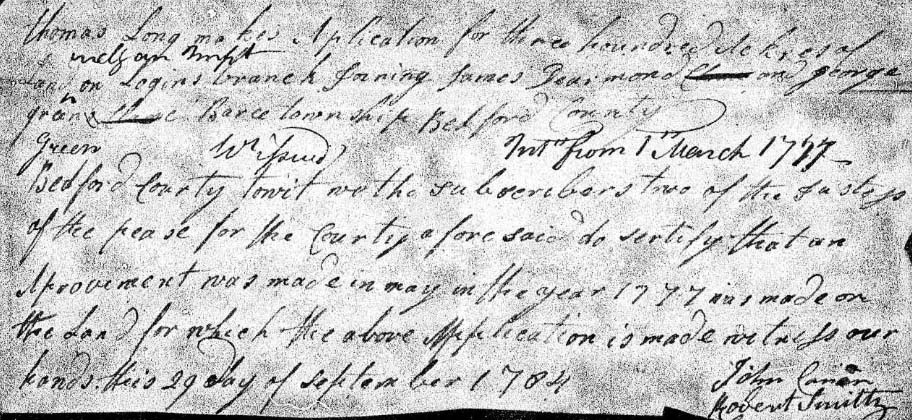 Thomas Long makes Aplication for three houndred Ackres of
with an Impt
Land on Logins branch Joining James Dearmond and george
green Baree township Bedford County
Green Wt issued Intt from 1st March 1777
Bedford County towit we the subscribers two of the Justeps
of the pease for the County afore said do sertify that an
Aprovement was made in may in the year 1777 was made on
the Land for which the above Applications is made witness our
hands this 29 day of September 1784
John Canan
Robert Smith